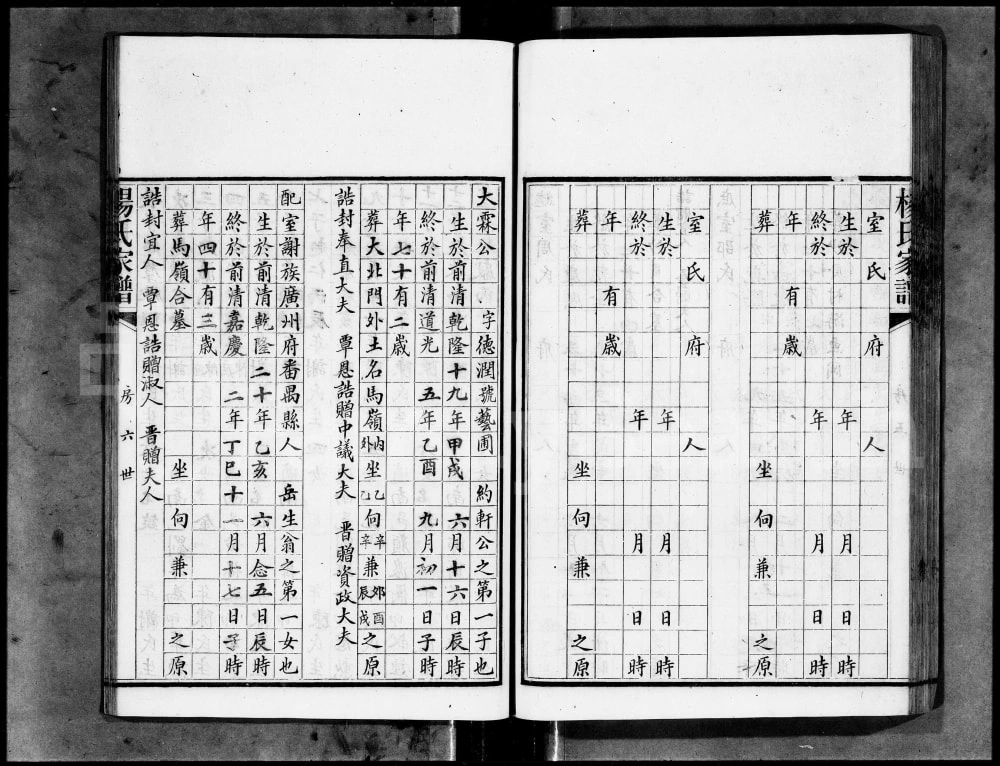 楊氏家譜
室 氏 府 人
生於 年 月 日 時
終於 年 月 日 時
年 有 歲
葬 坐 向 兼 之原
室 氏 府 人
生於 年 月 日 時
終於 年 月 日 時
年 有 歲
葬 坐 向 兼 之原
大霖公 字德潤號藝圃 約軒公之第一子也
生於前清乾隆十九年甲戌 六月十六日辰時
終於前清道光 五年乙酉 九月初一日子時
年七十有二歲
葬大北門外土名馬嶺內外坐乙乙向辛辛兼卯酉辰戌之原
誥封奉直大夫 覃恩誥贈中議大夫 晋贈資政大夫
配室謝族廣州府番禺縣人 岳生翁之第一女也
生於前清乾隆二十年乙亥 六月念五日辰時
終於前清嘉慶 二年丁巳十一月十七日子時
年四十有三歲
葬馬嶺合墓 坐 向 兼 之原
誥封宜人 覃恩誥贈淑人 晋贈夫人
楊氏家譜
房 六世